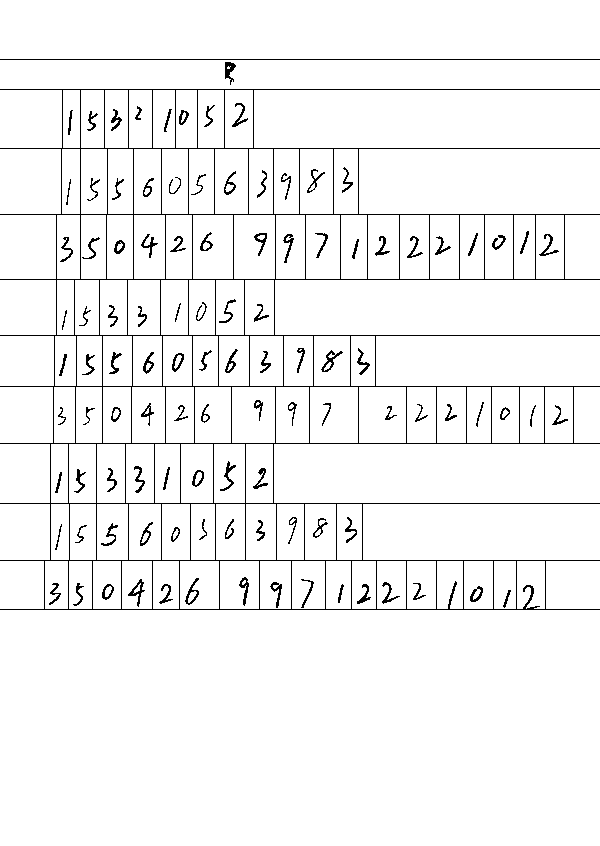 15321052
15560563983
350426 99712221012
15331052
15560563983
350426 997 2221012
15331052
15560363983
350426 99712221012